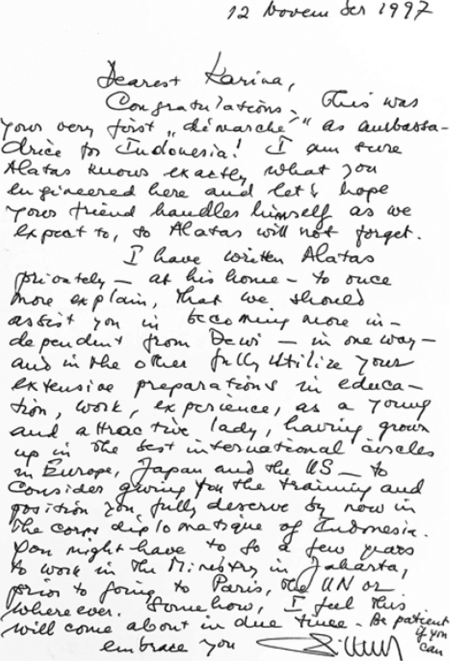 12 November 1997
Dearest Karina,
Congratulations. This was
your very first „démarche" as ambassa-
drice for Indonesia! I am sure
Alatas knows exactly what you
engineered here and let's hope
your friend handles himself as we
expect to, so Alatas will not forget.
I have written Alatas
privately — at his home — to once
more explain, that we should
assist you in becoming more in-
dependent from Dewi — in one way —
and in the other fully utilize your
extensive preparations in educa-
tion, work, experience, as a young
and attractive lady, having grown
up in the best international circles
in Europe, Japan and the US — to
consider giving you the training and
position you fully deserve by now in
the corps diplomatique of Indonesia.
You might have to go a few years
to work in the Ministry in Jakarta,
prior to going to Paris, the UN or
where ever. Somehow, I feel this
will come about in due time. Be patient
if you
can
embrace you